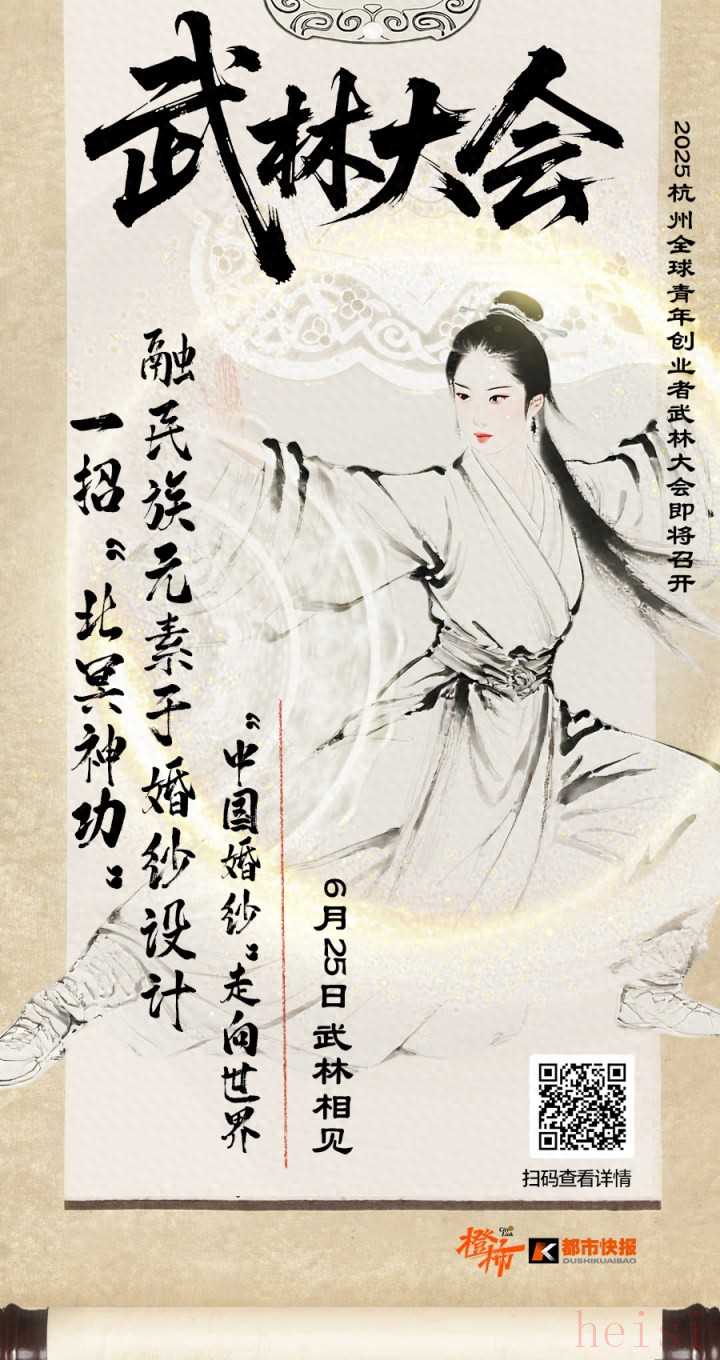 武林大会
2025杭州全球青年创业者武林大会即将召开
一招“北冥神功”
融民族元素于婚纱设计
“中国婚纱”走向世界
6月25日 武林相见
扫码查看详情
橙柿
都市快报
DUSHIKUAIBAO